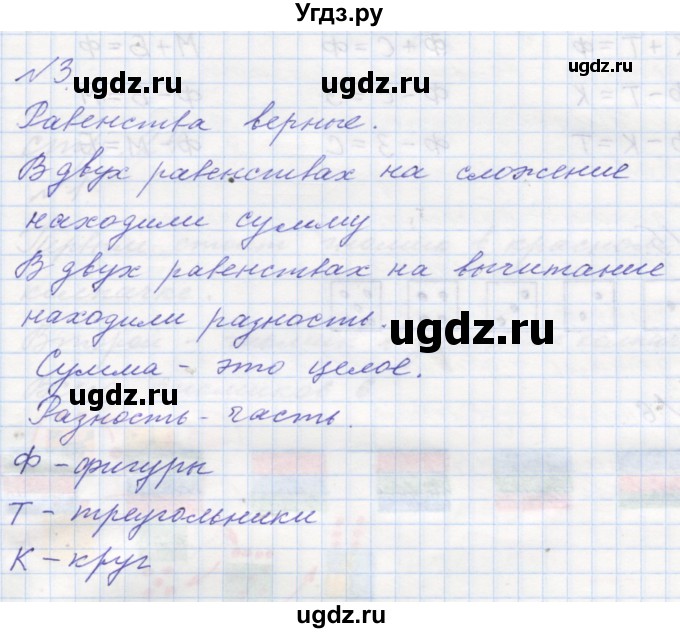 Угдз.ру
№3.
ugdz.ru ugdz.ru ugdz.ru
Равенства верные.
ugdz.ru ugdz.ru
В двух равенствах на сложение
находили сумму
В двух равенствах на вычитание
находили разность.
ugdz.ru
Сумма - это целое.
ugdz.ru ugdz.ru
Разность - часть.
Ф - фигуры
ugdz.ru
Т - треугольники
К - круг
ugdz.ru
ugdz.ru